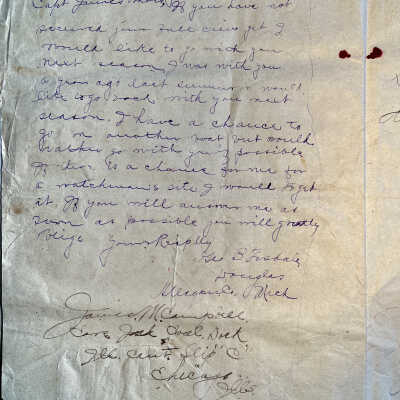 Capt James
If you have not
secured your full crew yet I
would like to go with you
next season. I was with you
a year ago last summer & would
like to go back with you next
season. I have a chance to
go on another boat but would
rather go with you if possible
If there is a chance for me for
a watchman's site I would get
at. If you will answer me as
soon as possible you will greatly
blige Yours Resptly
Geo B
Douglas
Mich
James M Campbell
Care Coal Dock
Ills. Cent. Slip "C"
Chicago
Ills.